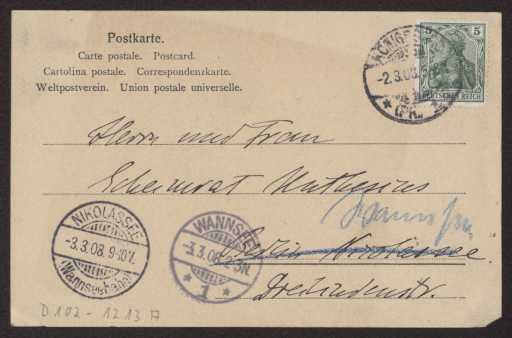 Postkarte.
Carte postale. Postcard.
Cartolina postale. Correspondenzkarte.
Weltpostverein. Union postale universelle.
5
DEUTSCHES REICH
-2.3.08.
(PR.)
Herrn und Frau
Geheimrat Muthesius
Wannsee
Berlin Nikolassee
Dreilindenstr.
NIKOLASSEE
-3.3.08.9-10V.
(Wannseebahn)
WANNSEE
-3.3.08.
* 1 *
D 102 - 1213 A